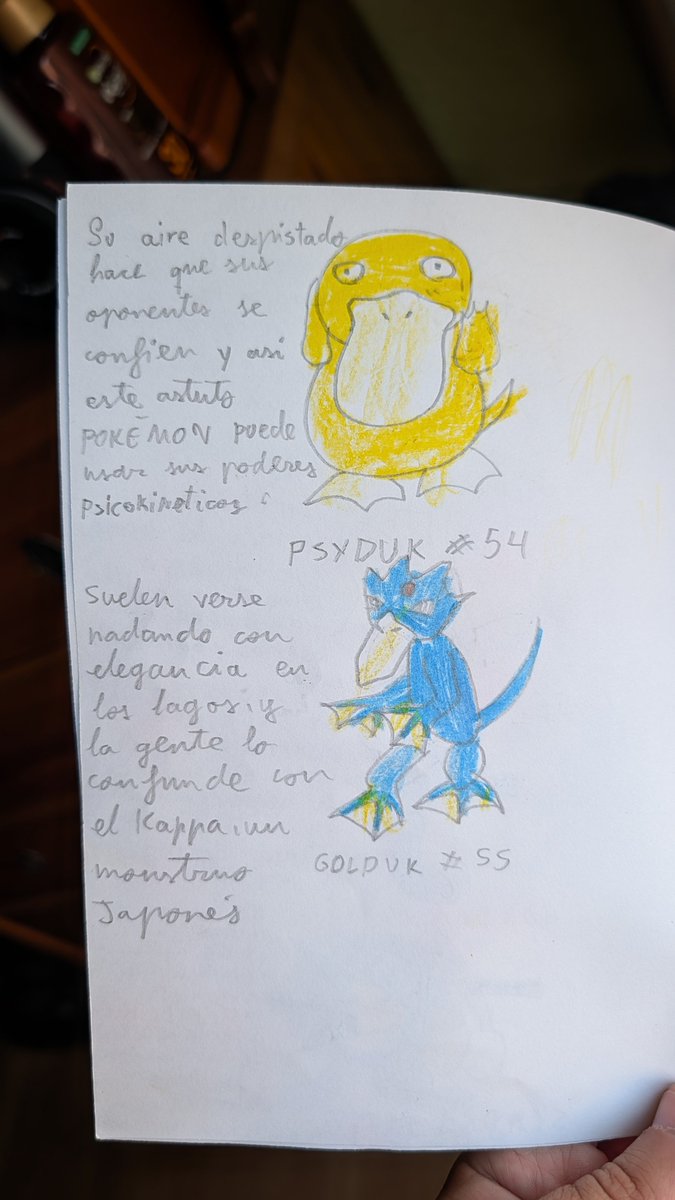 Su aire despistado
hace que sus
oponentes se
confien y asi
este astuto
POKĒMON puede
usar sus poderes
psicokineticos
PSYDUK #54
Suelen verse
nadando con
elegancia en
los lagos, y
la gente lo
confunde con
el Kappa, un
monstruo
Japonés
GOLDUK #55